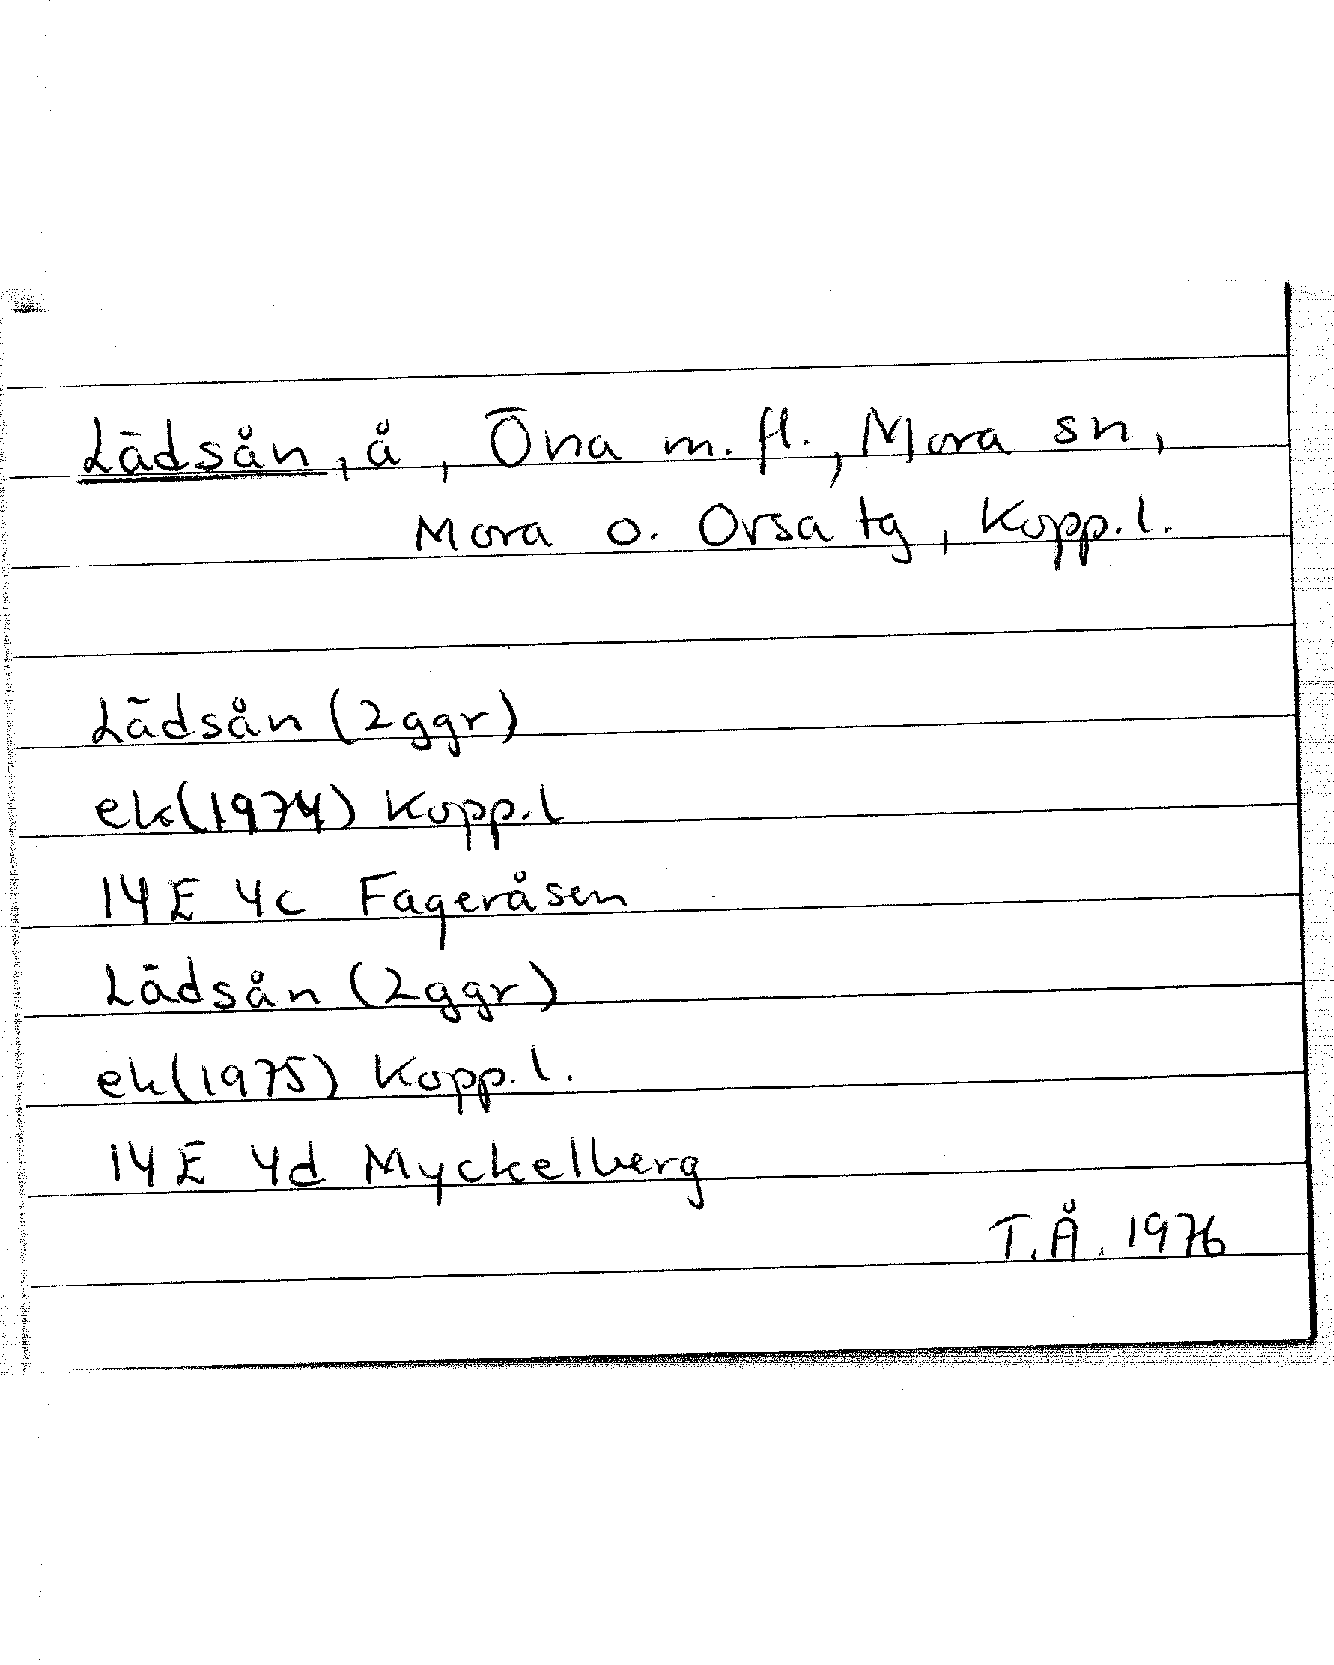 Lädsån, å, Öna m. fl., Mora sn,
Mora o. Orsa tg, Kopp. l.
Lädsån (2 ggr)
ek (1974) Kopp. l
14 E 4c Fageråsen
Lädsån (2 ggr)
ek (1975) Kopp. l.
14 E 4d Myckelberg
T.Å. 1976